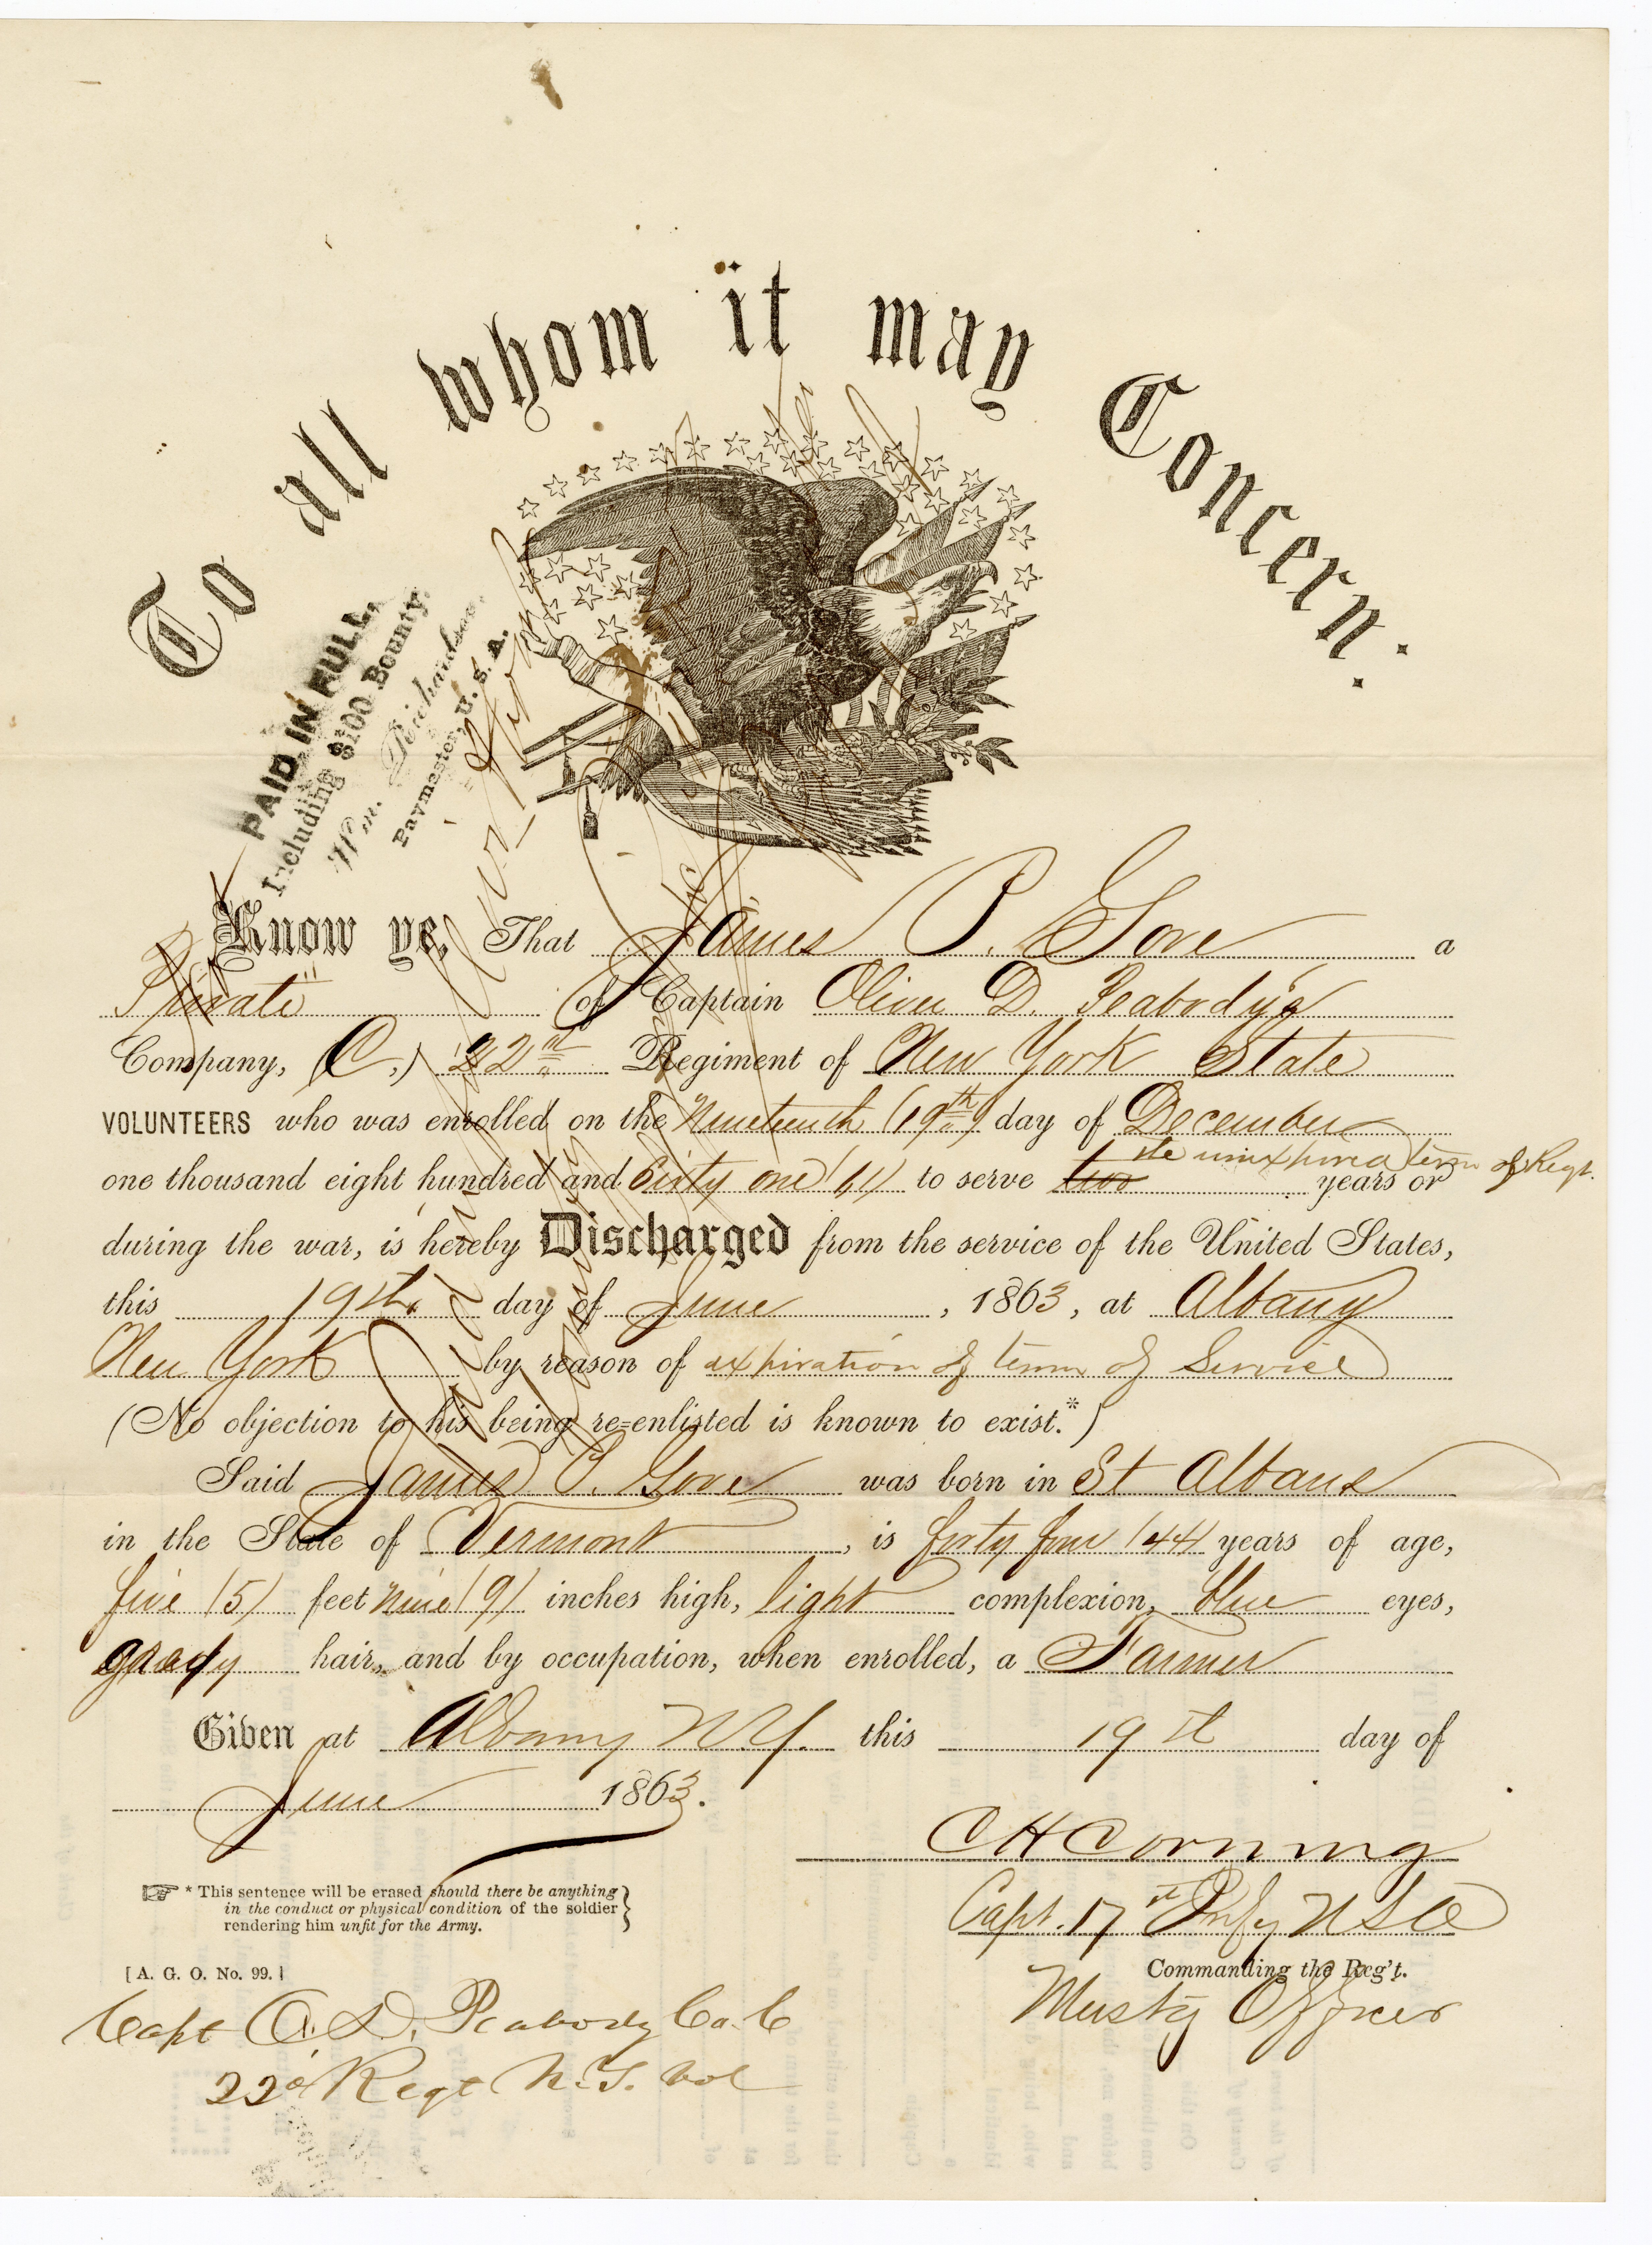 To all whom it may Concern.
PAID IN FULL,
Including $100 Bounty.
Wm. Richardson.
Paymaster, U. S. A.
Know ye, That James P. Gove a
Private of Captain Oliver D. Peabody's
Company, (C,) 22nd Regiment of New York State
VOLUNTEERS who was enrolled on the Nineteenth (19th) day of December
the unexpired term of Regt.
one thousand eight hundred and Sixty one (61) to serve two years or
during the war, is hereby Discharged from the service of the United States,
this 19th day of June, 1863, at Albany
New York by reason of expiration of term of Service
(No objection to his being re-enlisted is known to exist.*)
Said James P. Gove was born in St Albans
in the State of Vermont, is forty four (44) years of age,
five (5) feet nine (9) inches high, light complexion, blue eyes,
hair, and by occupation, when enrolled, a Farmer
Given at Albany N.Y. this 19th day of
June 1863.
C H Corning
Capt. 17th Infy U S A
* This sentence will be erased should there be anything
in the conduct or physical condition of the soldier
rendering him unfit for the Army.
Commanding the Reg't.
[A. G. O. No. 99.]
Mustg Officer
Capt O. D. Peabody Co. C
22d Regt N.Y. Vol